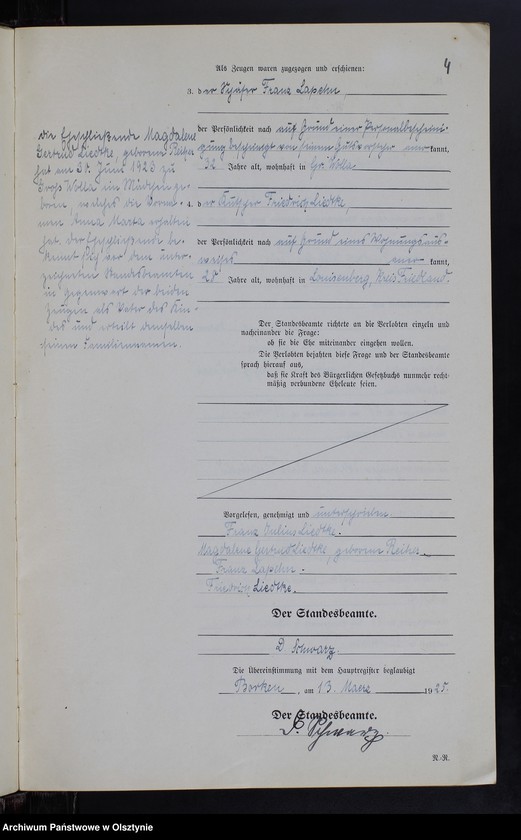 4
Als Zeugen waren zugezogen und erschienen:
3. der Schäfer Franz Lapehn
der Persönlichkeit nach auf Grund einer Personalbescheini-
gung beschei­nigt von seinem Gutsvorsteher anerkannt,
32 Jahre alt, wohnhaft in Gr. Wolla
4. der Kutscher Friedrich Liedtke,
der Persönlichkeit nach auf Grund eines Wohnungsaus-
weises anerkannt,
Jahre alt, wohnhaft in Louisenberg, Kreis Friedland.
Die Eheschließende Magdalene
Gertrud Liedtke, geborene
hat am 30. Juni 1923 zu
Gross Wolla ein Mädchen ge-
boren welches die Vorna-
men Anna Marta erhalten
hat der Eheschließende be-
kennt sich vor dem unter-
zeichneten Standesbeamten
in Gegenwart der beiden
Zeugen als Vater des Kin-
des und erteilt demselben
seinen Familiennamen.
Der Standesbeamte richtete an die Verlobten einzeln und
nacheinander die Frage:
ob sie die Ehe miteinander eingehen wollen.
Die Verlobten bejahten diese Frage und der Standesbeamte
sprach hierauf aus,
daß sie kraft des Bürgerlichen Gesetzbuchs nunmehr recht-
mäßig verbundene Eheleute seien.
Vorgelesen, genehmigt und unterschrieben.
Franz Julius Liedtke.
Magdalene Gertrud Liedtke, geborene
Franz Lapehn.
Friedrich Liedtke.
Der Standesbeamte.
D Schwarz.
Die Übereinstimmung mit dem Hauptregister beglaubigt
Borken, am 13. Maerz 1925.
Der Standesbeamte.
Schwarz
N.-R.
Archiwum Państwowe w Olsztynie